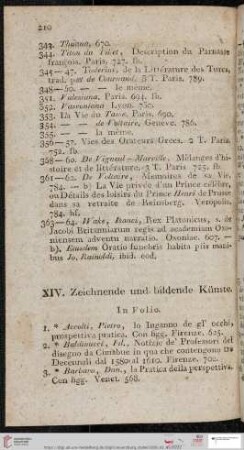 210
343. Thuana, 670.
344. Titon du Tillet, Description du Parnasse
françois. Paris. 727. fb.
345—47. Toderini, de la Littérature des Turcs,
trad. par de Cournand. 3 T. Paris. 789.
348—50. — — le même.
351. Valesiana. Paris. 694. fb.
353. La Vie du Tasse. Paris. 690.
354. — — de Voltaire, Geneve. 786.
355. — — la même.
356—57. Vies des Orateurs Grecs. 2 T. Paris.
752. fb.
358—60. De Vigneul-Marville, Mélanges d'hi-
stoire et de littérature. 3 T. Paris. 725. fb.
361—62. De Voltaire, Memoires de sa Vie.
784. — b) La Vie privée d'un Prince célèbre,
ou Détails des loisirs du Prince Henri de Prusse
dans sa retraite de Reinsberg. Veropolis,
784. hf.
363—64. Wake, Isaaci, Rex Platonicus, s. de
Jacobi Britanniarum regis ad academiam Oxo-
niensem adventu narratio. Oxoniae. 607. —
b) Eiusdem Oratio funebris habita piis manibus
Jo. Rainoldi, ibid. eod.
XIV. Zeichnende und bildende Künste.
In Folio.
1. * Accolti, Pietro, lo Inganno de gl' occhi,
prospettiva pratica. Con figg. Firenze. 625.
2. * Baldinucci, Fil., Notizie de' Professori del
disegno da Cimabue in qua che contengono tre
Decennali dal 1580 al 1610. Firenze. 702.
3. * Barbaro, Dan., la Pratica della perspettiva.
Con figg. Venet. 568.